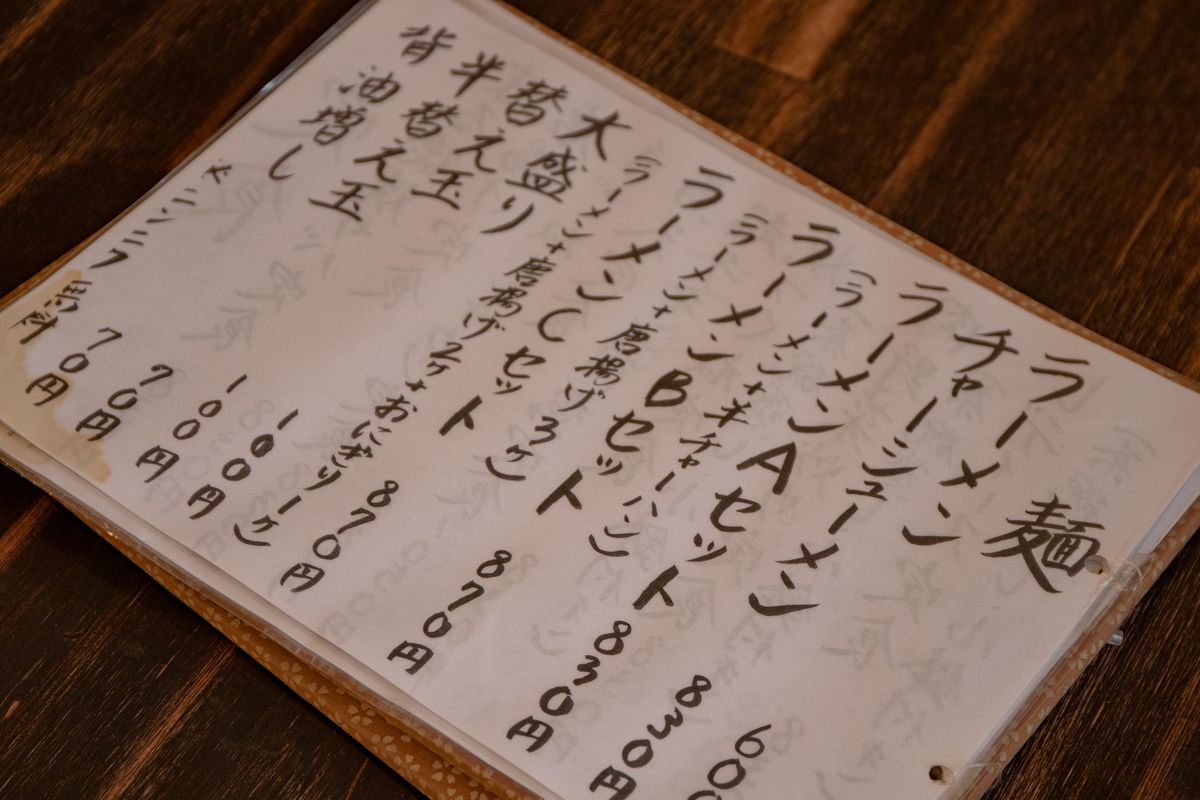 麺
ラーメン 60
チャーシューメン 830円
ラーメンAセット 830円
(ラーメン+半チャーハン)
ラーメンBセット 870円
(ラーメン+唐揚げ3ケ)
ラーメンCセット 870円
(ラーメン+唐揚げ2ケ+おにぎり1ケ)
大盛り 100円
替え玉 100円
半替え玉 70円
背油増し 70円
※ニンニク無料